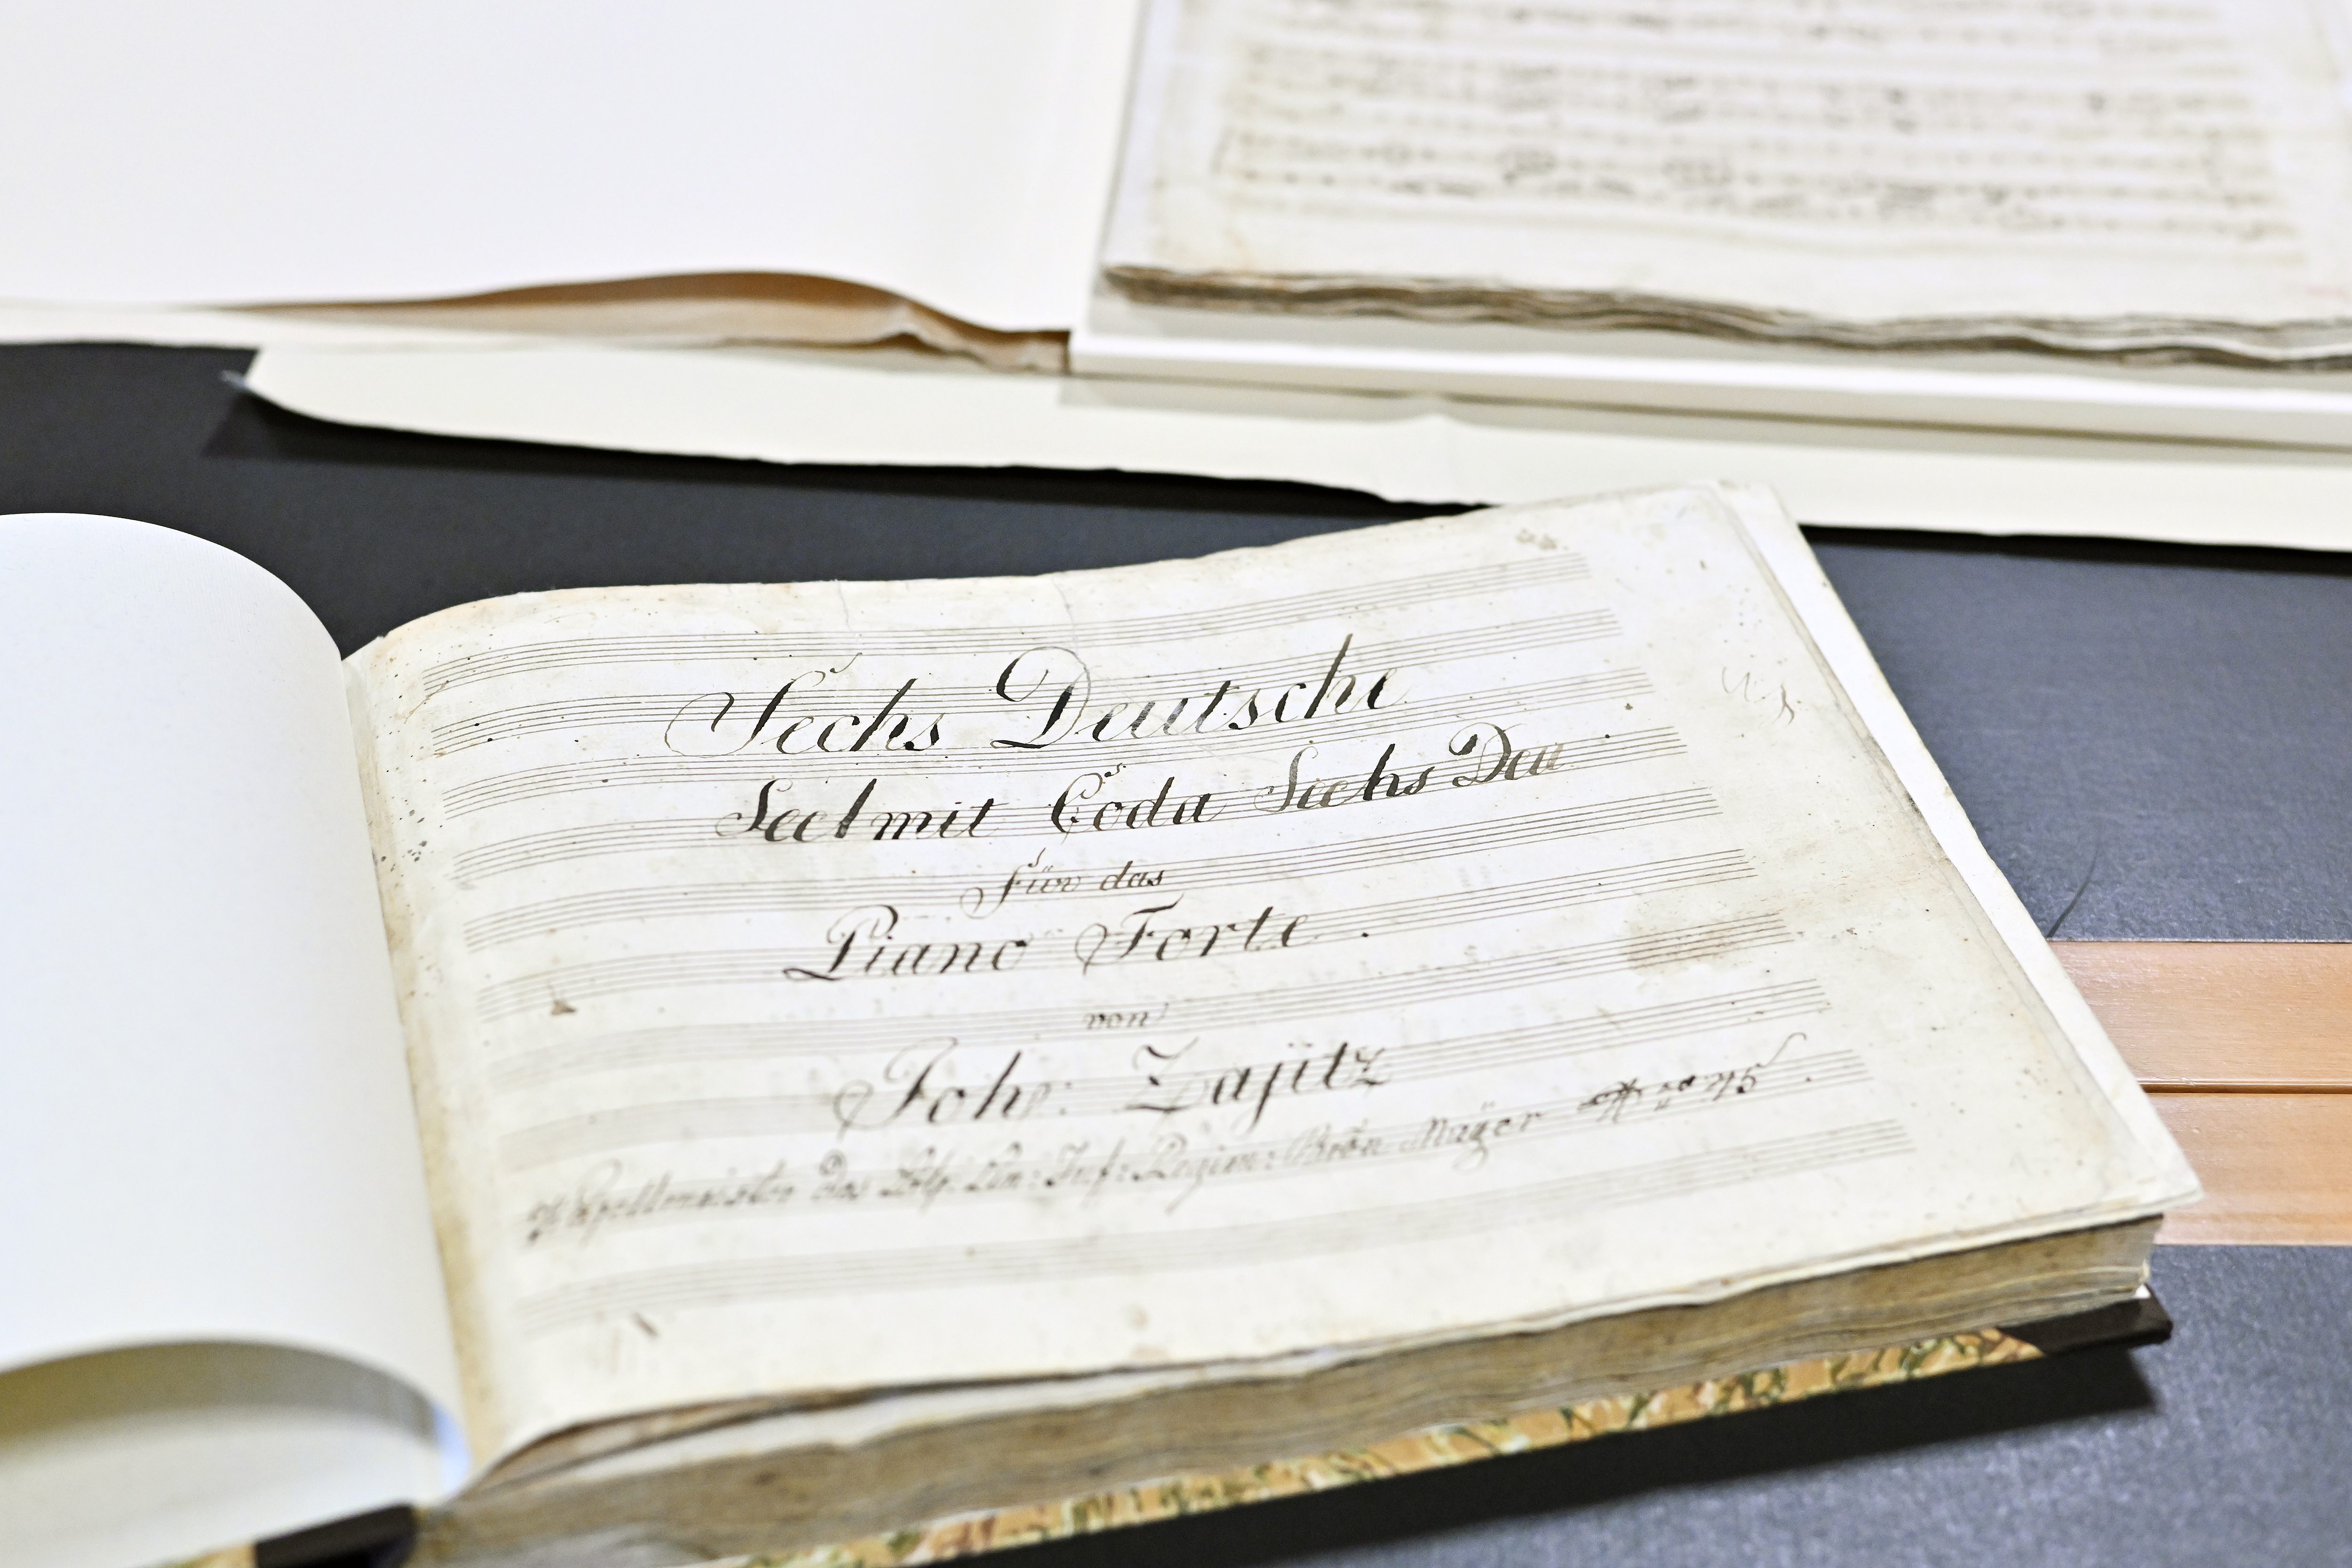 Sechs Deutsche
mit Coda Sechs Deu
Für das
Piano Forte.
von
Joh: Zajitz
Kapellmeister des Inf: Regim: Bron Mayer